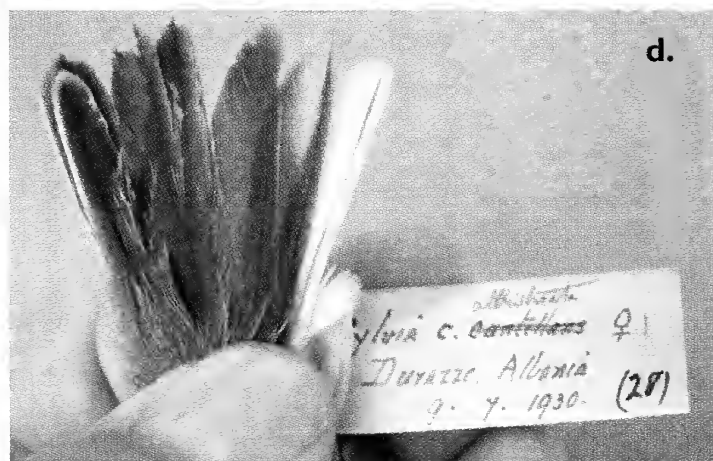 d.
albistriata
ylvia c. cantillans ♀
Durazzo. Albania
9. 7. 1930. (28)